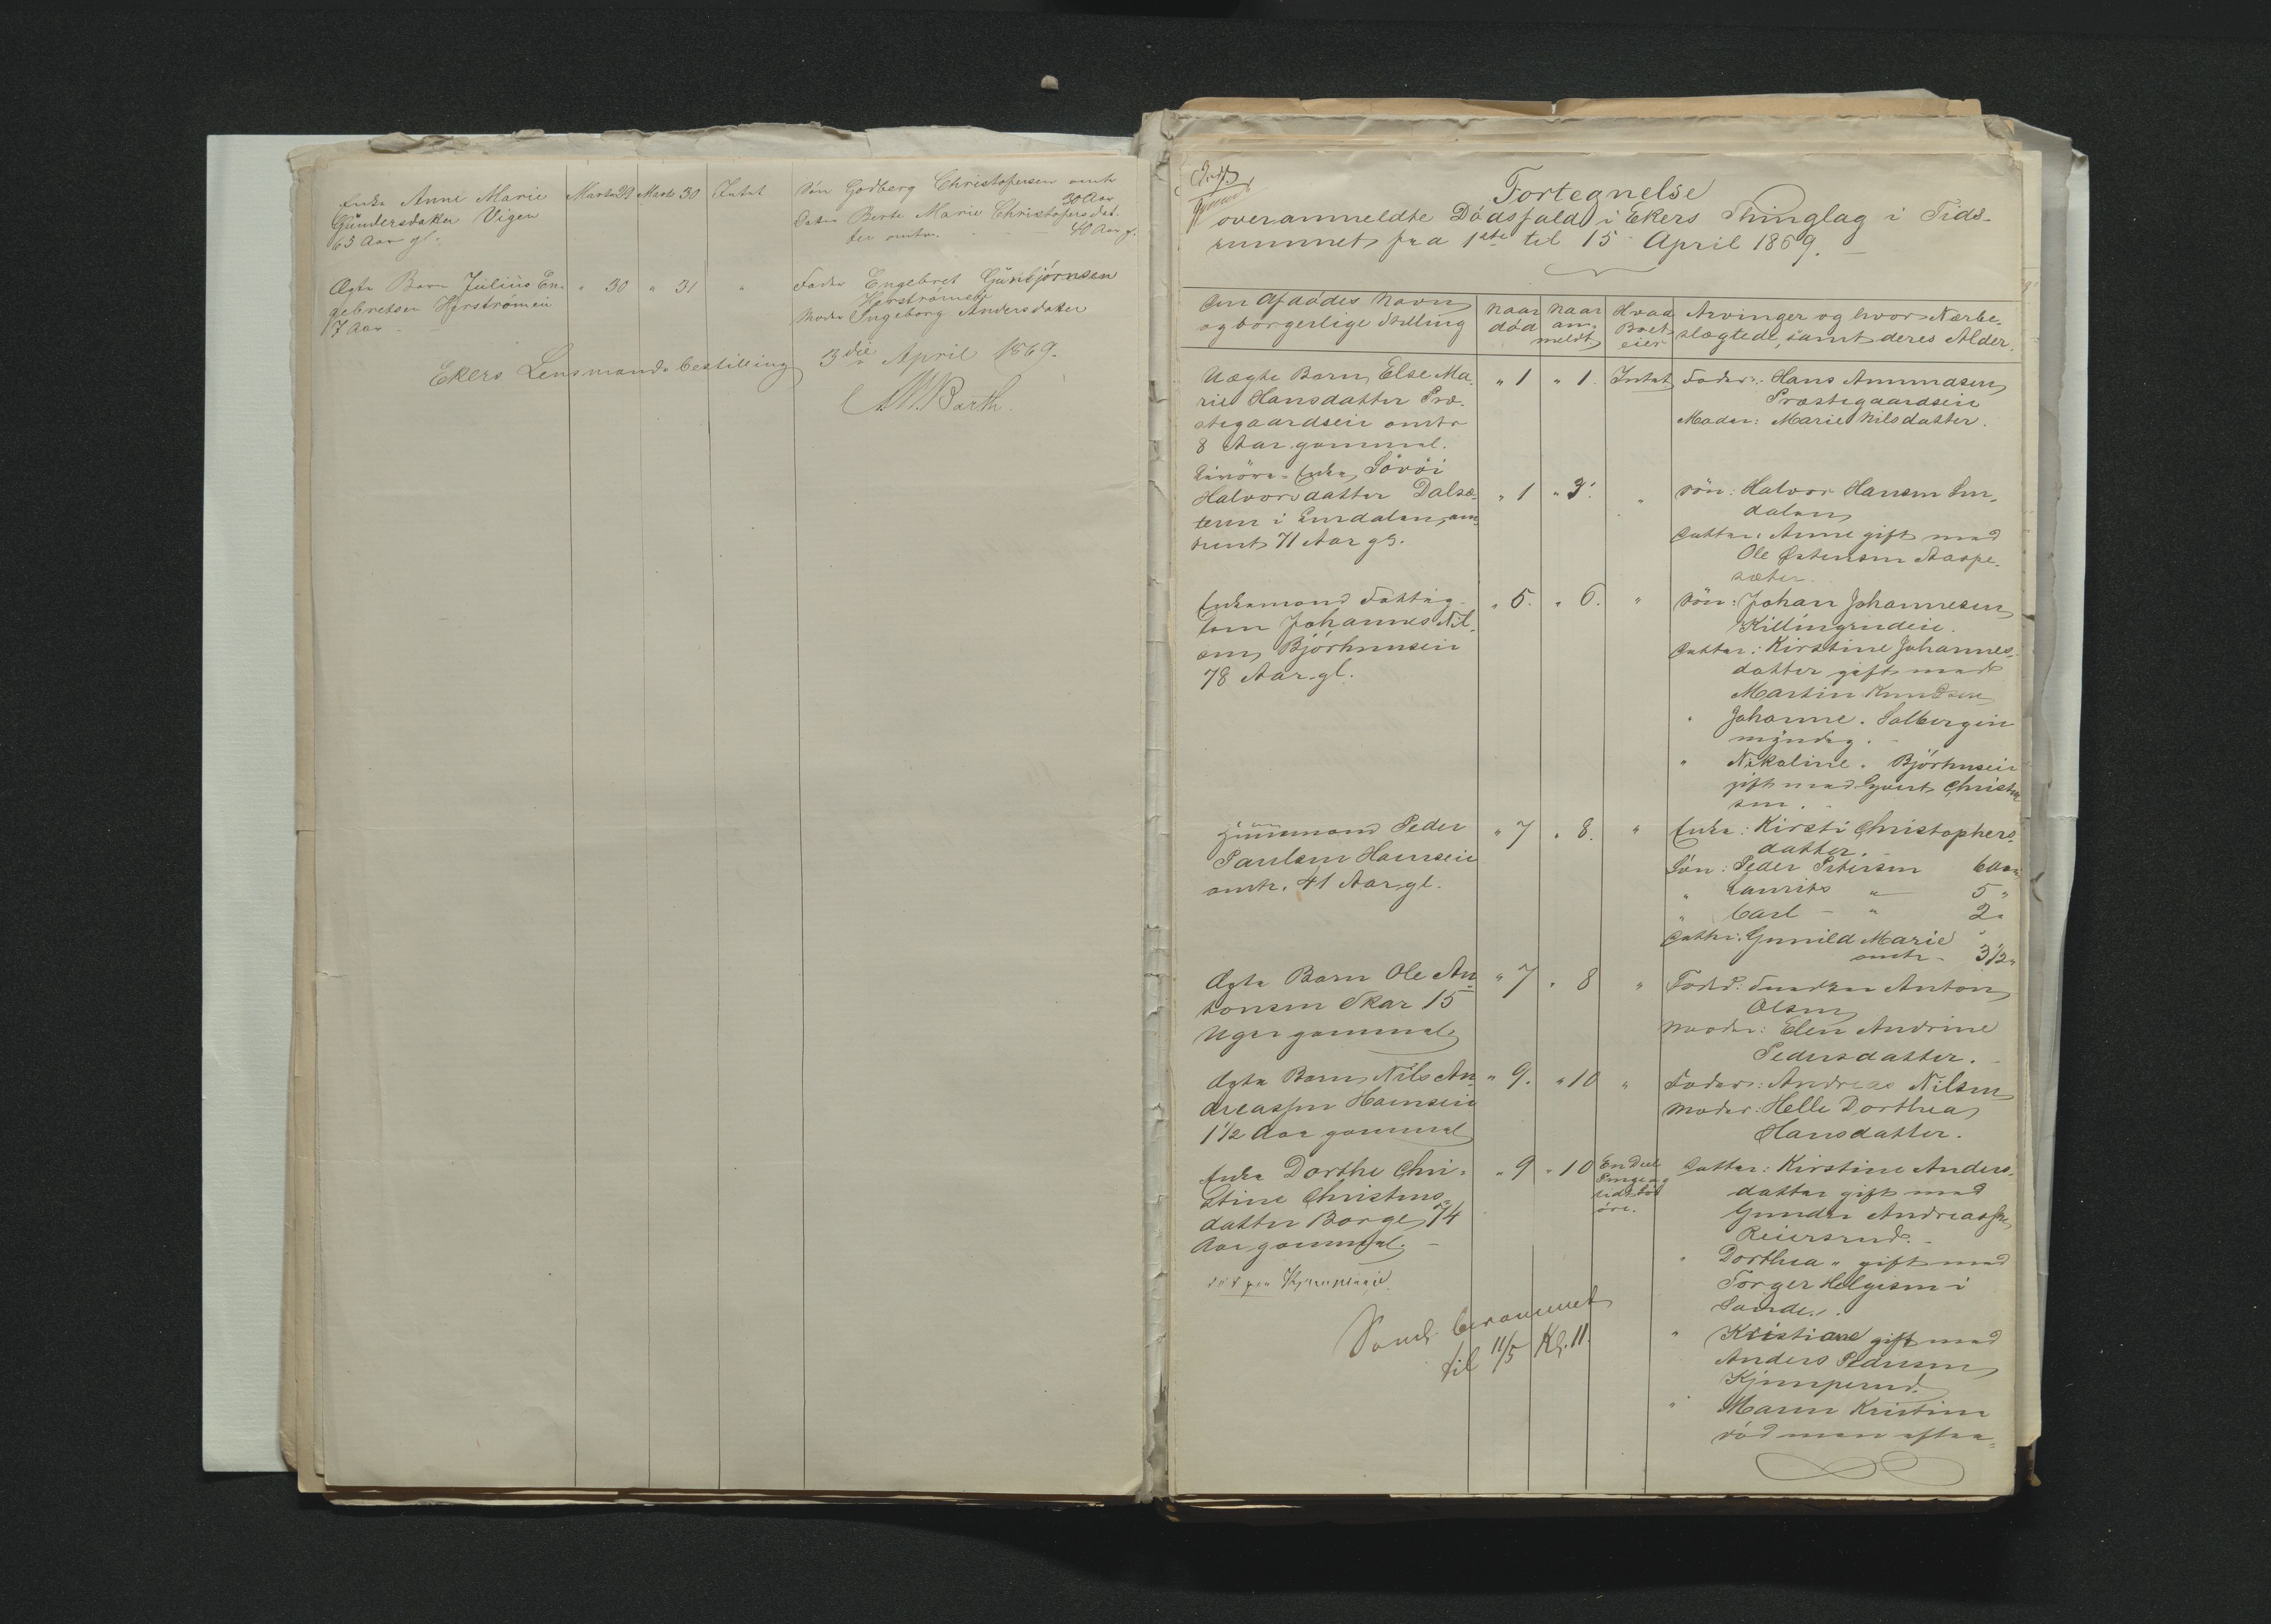 Enke Anne Marie
Gundersdatter Vigen
63 Aar gl.
Marts 29
Marts 30
Intet
Søn Godberg Christofersen omtr
30 Aar
Datter Berte Marie Christofersdat-
ter omtr. 40 Aar g.
Ægte Barn Julius En-
gebretsen Hørströmeie
7 Aar
" 30
" 31
"
Fader Engebret Gunbjörnsen
Moder Ingeborg Andersdatter
Ekers Lensmandsbestilling 3die April 1869.
Barth.
Fortegnelse
over anmeldte Dødsfald i Ekers Thinglag i Tids-
rummet fra 1ste til 15 April 1869.
Den Afdødes Navn
og borgerlige Stilling
Naar
død
Naar
an-
meldt
Hvad
Boet
eier
Arvinger og hvor Nærbe-
slægtede, samt deres Alder.
Uægte Barn Else Ma-
rie Hansdatter Præ-
stegaardseie omtr
8 Aar gammel.
" 1
" 1
Intet
Fader: Hans Amundsen
Præstegaardseie
Moder: Marie Nilsdatter.
Enke
Halvorsdatter Dalsæ-
teren i
71 Aar gl.
" 1
" 3.
"
Søn: Halvor Hansen
dalen
Datter: Anne gift med
Ole Østensen Aaspe-
sæter.
Enkemand Fattig-
lem Johannes Nil-
sen Björhuuseie
78 Aar gl.
" 5.
" 6.
"
Søn: Johan Johannesen
Killingrudeie.
Datter: Kirstine Johannes-
datter gift med
Martin Knudsen
" Johanne " Solbergeie
myndig.
" Nikoline " Björhuseie
gift med Syvert Christen
sen.
Huusmand Peder
Paulsen Hamseie
omtr. 41 Aar gl.
" 7
" 8.
"
Enke: Kirsti Christophers-
datter.
Søn: Peder Petersen 6 Aar
" Laurits " 5 "
" Carl " 2 "
Datter: Gunild Marie
omtr. 3 1/2 "
Ægte Barn Ole An-
tonsen Skar 15
Uger gammel
" 7
" 8
"
Anton
Olsen
Moder: Elen Andrine
Pedersdatter.
Ægte Barn Nils An-
dreassen Hamseie
1 1/2 Aar gammel
" 9.
" 10
"
Fader: Andreas Nilsen
Moder: Helle Dorthea
Hansdatter.
Enke Dorthe Chri-
stine Christens-
datter Borge, 74
Aar gammel.
" 9
" 10
En Deel
Penge og
Datter: Kirstine Anders-
datter gift med
Gunder Andreassen
Reiersrud.
" Dorthea " gift med
Torger Helgesen i
Sande.
" Kristiane gift med
Anders Pedersen
Kjemperud.
" Maren Kristine
død men efter-
berammet
til 11/5 Kl. 11.